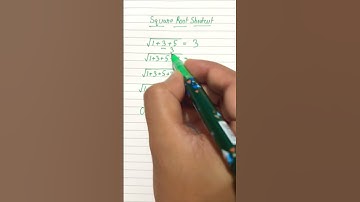 Square Root Shortcut
√1+3+5 = 3
3
√1+3+5
√1+3+5+
√1